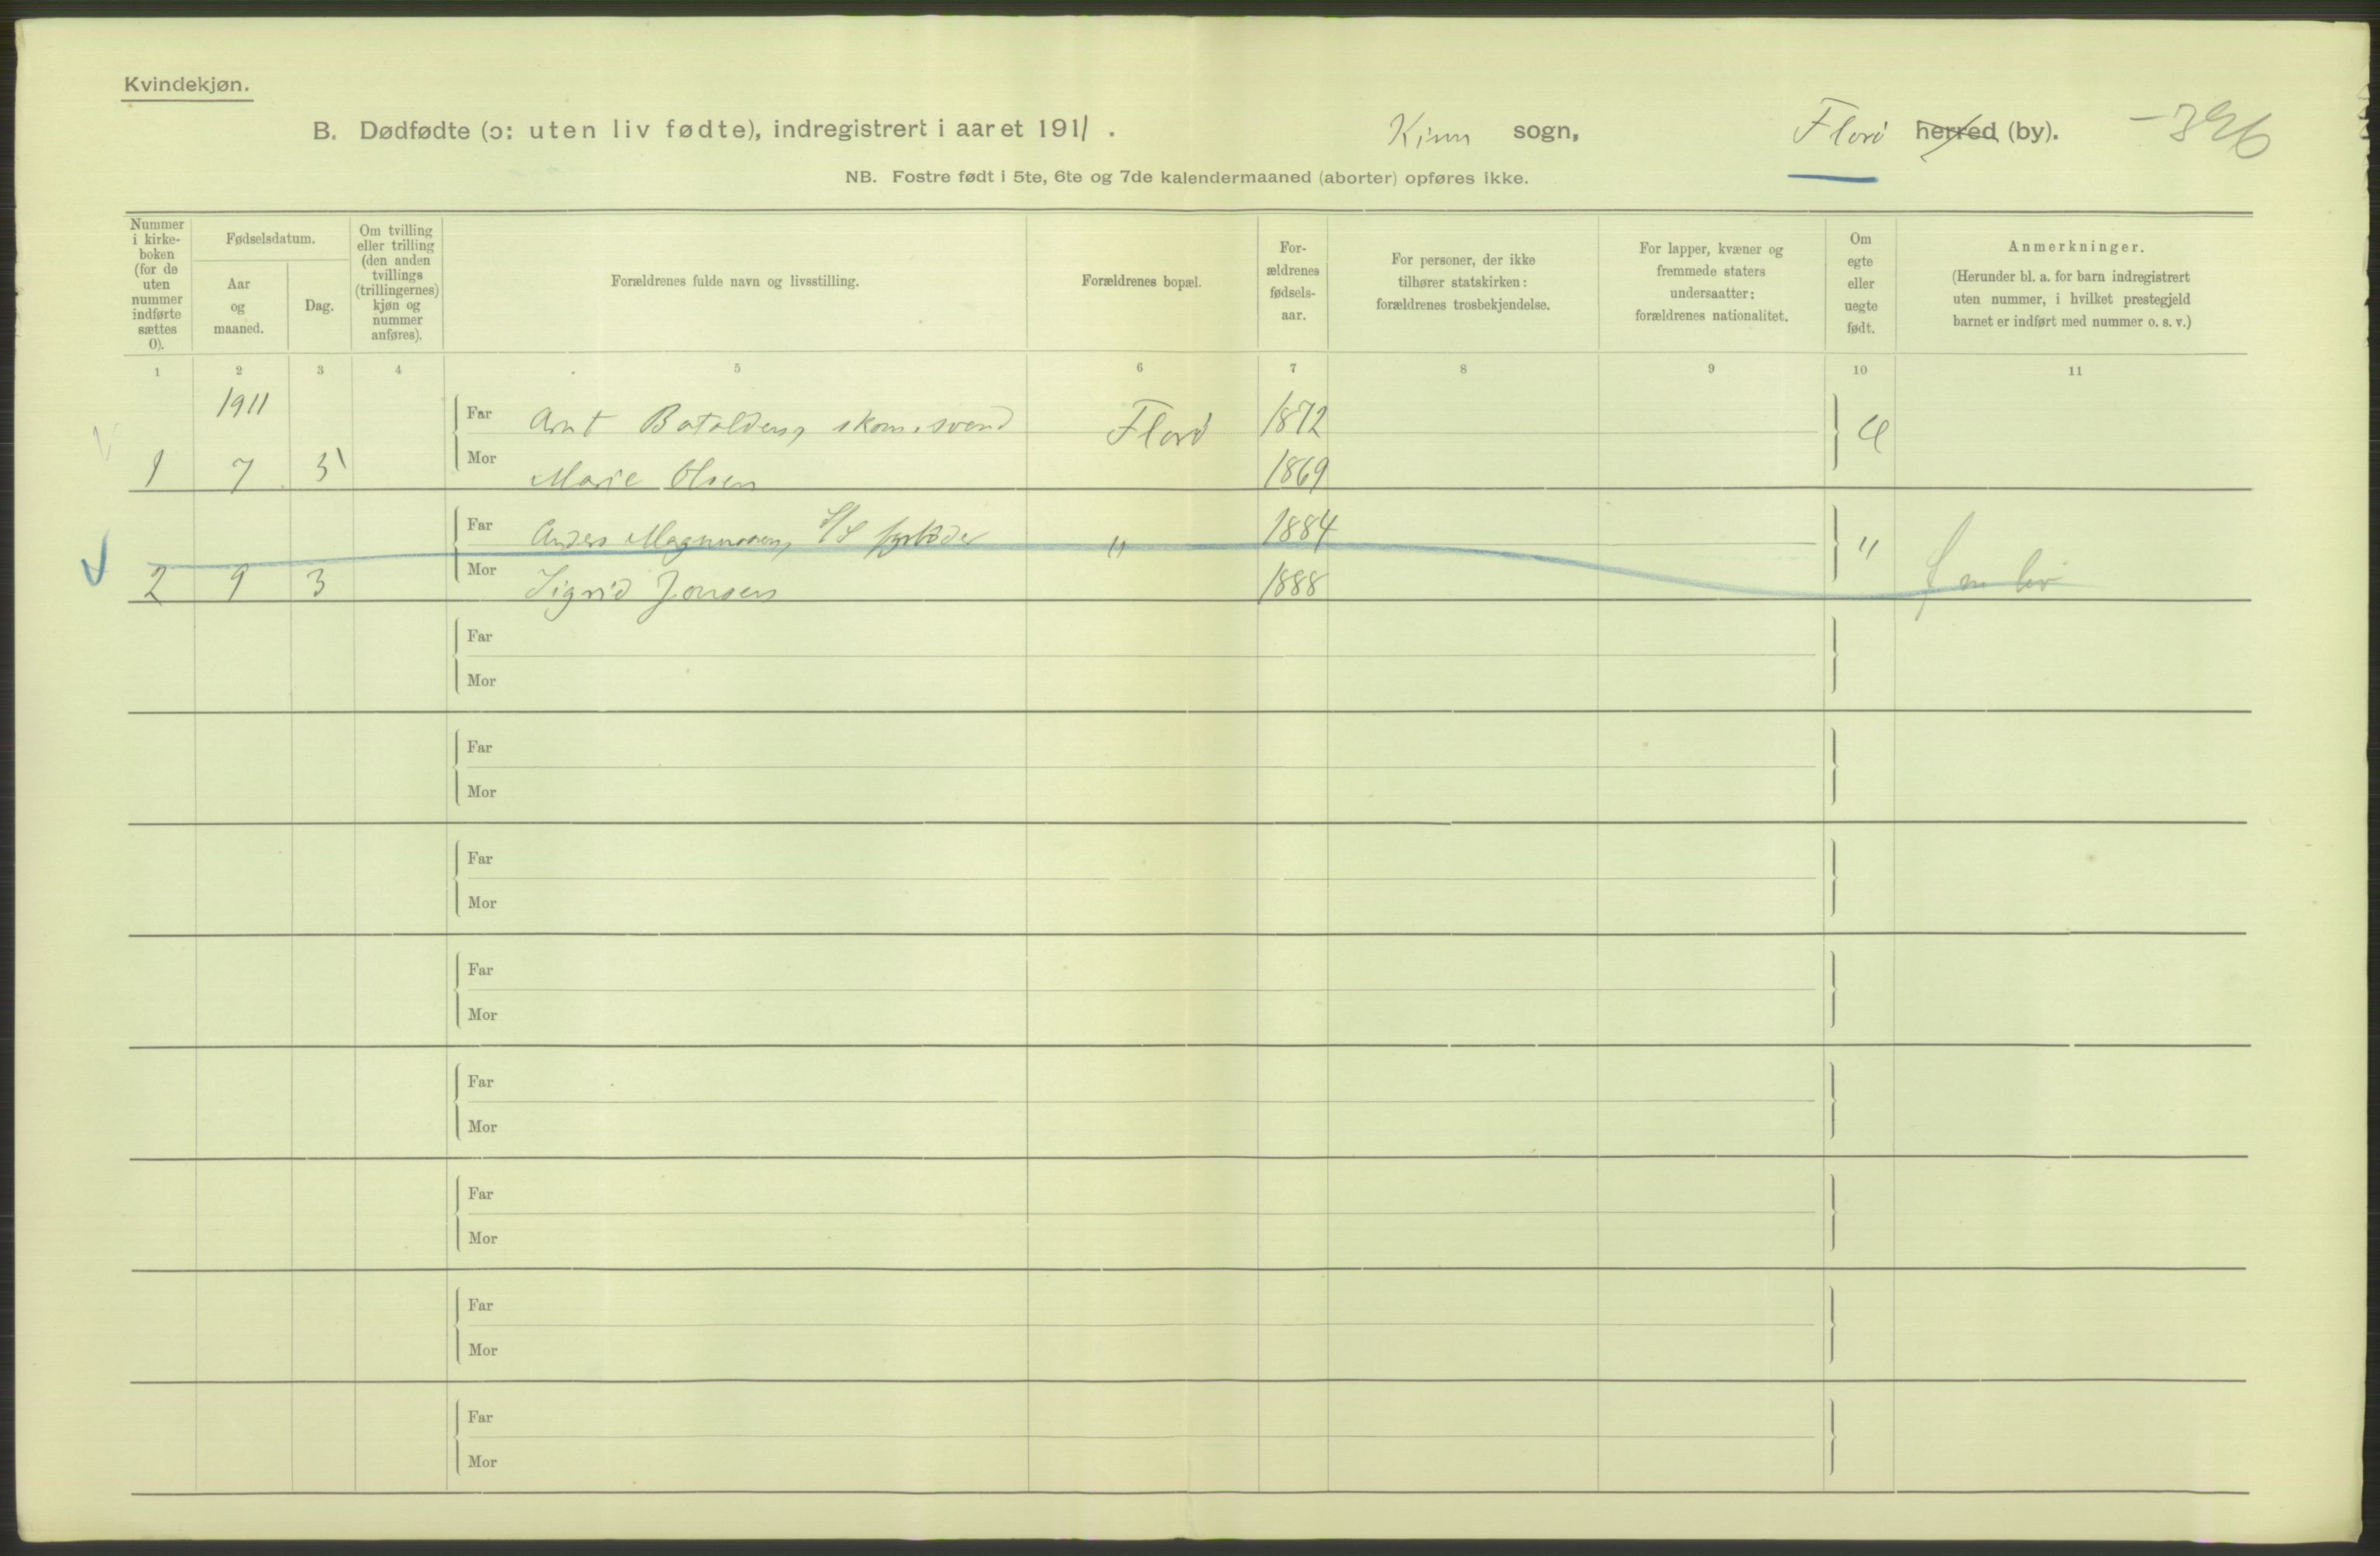 Kvindekjøn.
B. Dødfødte (ɔ: uten liv fødte), indregistrert i aaret 1911. Kinn sogn, Florø herred (by). - 396
NB. Fostre født i 5te, 6te og 7de kalendermaaned (aborter) opføres ikke.
Nummer i kirke-boken (for de uten nummer indførte sættes 0).
Fødselsdatum.
Aar og maaned.
Dag.
Om tvilling eller trilling (den anden tvillings (trillingernes) kjøn og nummer anføres).
Forældrenes fulde navn og livsstilling.
Forældrenes bopæl.
For-ældrenes fødsels-aar.
For personer, der ikke tilhører statskirken: forældrenes trosbekjendelse.
For lapper, kvæner og fremmede staters undersaatter: forældrenes nationalitet.
Om egte eller uegte født.
Anmerkninger.
(Herunder bl. a. for barn indregistrert uten nummer, i hvilket prestegjeld barnet er indført med nummer o. s. v.)
1 2 3 4 5 6 7 8 9 10 11
1911
Far Arnt Batalden, skom.svend Florø 1872
1 7 5 Mor Marie Olsen 1869
Far Anders Magnussen, fyrbøder " 1884 "
2 9 3 Mor Sigrid Jensen 1888
Far
Mor
Far
Mor
Far
Mor
Far
Mor
Far
Mor
Far
Mor
Far
Mor
Far
Mor